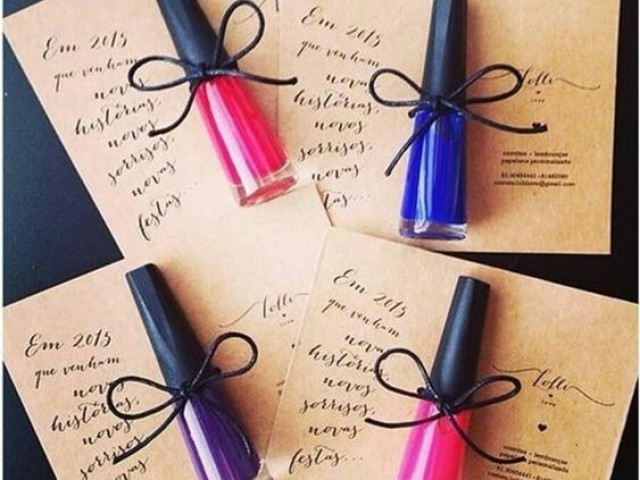 Em 2015
que venham
novas
histórias,
novos
sorrisos,
novas
festas...
Em 2015
que venham
novas
histórias,
novos
sorrisos,
novas
Lolli
love
convites • lembranças
papelaria personalizada
Em 2015
que venham
novas
histórias,
novos
sorrisos
novas
Lolli
love
Em 2015
que venham
novas
histórias,
novos
sorrisos,
novas
festas...
Lolli
love
convites • lembranças
papelaria personalizada